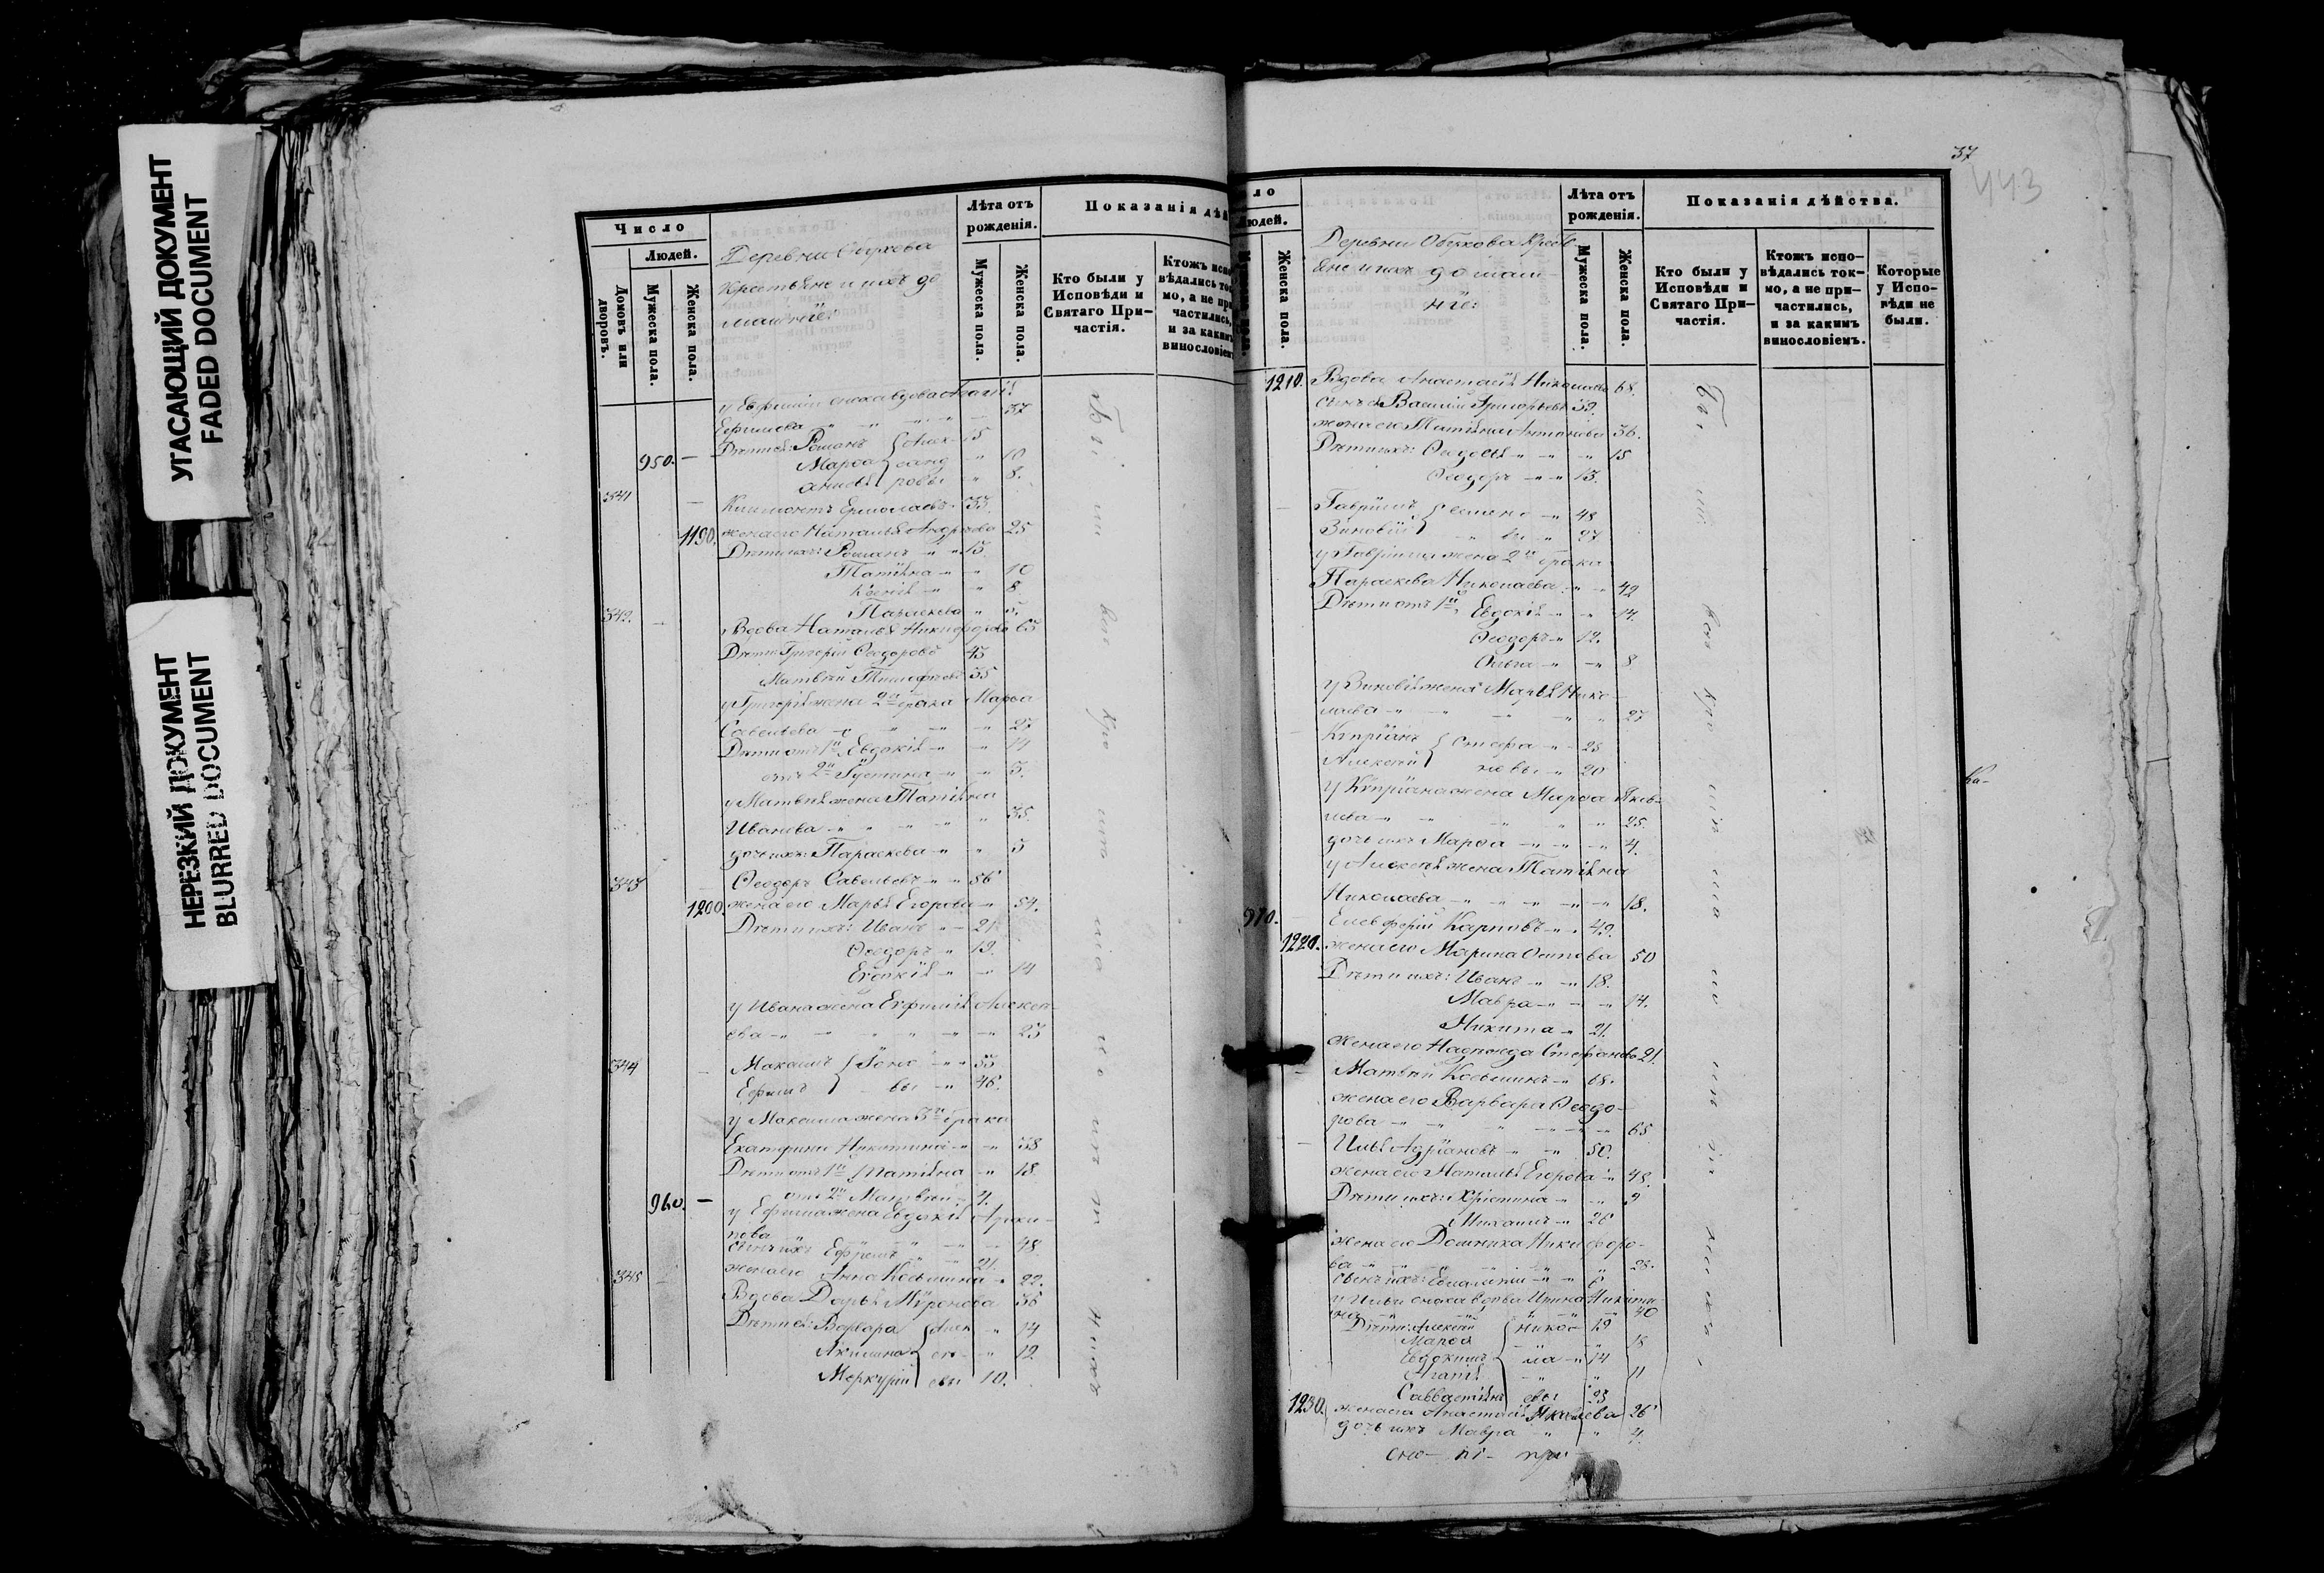 УГАСАЮЩИЙ ДОКУМЕНТ
FADED DOCUMENT
НЕРЕЗКИЙ ДОКУМЕНТ
BLURRED DOCUMENT
Число
Людей.
Домовъ или дворовъ.
Мужеска пола.
Женска пола.
Деревни Обухова
крестьяне и ихъ до
машніе:
Лѣта отъ рожденія.
Мужеска пола.
Женска пола.
Показанія дѣй
Кто были у Исповѣди и Святаго При-
частія.
Ктожъ испо
вѣдались ток
мо, а не при
частились,
и за какимъ
винословіем
у Евфимій сноха вдова
Ефимова " " 37
Дѣти ея: Романъ Алек- 15
950. — Марѳа санд " 10
ровы " 8.
341 — Климентъ Ермолаевъ 33.
1190. жена его Наталья Андреева 25
Дѣти ихъ: Романъ " " 13.
Татіяна " " 10
Ксенія " " 8
Параскева " 5.
342. — Вдова Наталья Никифорова 63
Дѣти: Григорій Ѳеодоровъ 43
Матвѣй Тимофѣевъ 35
у Григорія жена 2го брака Марѳа
Савельева " " 27
Дѣти отъ 1й Евдокія " " 14
отъ 2й Іустина " " 3.
у Матвѣя жена Татіяна
Иванова " " " 35.
дочь ихъ: Параскева " " 5
343 — Ѳеодоръ Савельевъ " " 56
1200. жена его Марья Егорова " 54.
Дѣти ихъ: Иванъ " 21.
Ѳеодоръ " 19.
Евдокія " " 14
у Ивана жена Евфимія Алексѣ-
ева " " " " 23
344 — Максимъ Іоно- " " 53
Ефимъ вы " 46.
у Максима жена 3го брака
Екатерина Никитина " " 38
Дѣти отъ 1й Татіяна " 18.
960. — отъ 2й Матвѣй " 4.
у Ефима жена Евдокія Архи-
пова " " " 48.
сынъ ихъ Ефремъ " 21.
жена его Анна Козьмина " 22.
345 — Вдова Дарья Мѵронова 36
Дѣти ея: Варвара Алек " 14
Акилина сѣ- " 12
Меркурій евы 10.
ло
Людей.
Мужеска пола.
Женска пола.
Деревни Обухова крест-
яне и ихъ домаш-
ніе:
Лѣта отъ рожденія.
Мужеска пола.
Женска пола.
Показанія дѣйства.
Кто были у Исповѣди и Святаго При-
частія.
Ктожъ испо-
вѣдались ток-
мо, а не при-
частились,
и за какимъ
винословіемъ.
Которые у Испо-
вѣди не были.
37
443
1210. Вдова Анастасія Николаева 68.
сынъ ея Василій Григорьевъ 39.
жена его Татіяна Антонова 36.
Дѣти ихъ: Ѳедосья " " " 15
Ѳеодоръ " " 13.
Гавріилъ Семено- " 48
Зиновій вы " 27
у Гавріила жена 2го брака
Параскева Николаева " " 42
Дѣти отъ 1й Евдокія " " 14.
Ѳеодоръ " 12.
Ольга " " 8
у Зиновія жена Марья Нико-
лаева " " " " 27
Кѵпріанъ Стефа- " 28
Алексѣй новы " 20
у Кѵпріана жена Марѳа Яков-
лева " " " " 25.
дочь ихъ Марѳа " " " 4.
у Алексѣя жена Татіяна
Николаева " " " " 18.
970. Елевферій Карповъ " 49.
1220. жена его Марина Осипова 50
Дѣти ихъ: Иванъ " " 18.
Мавра " " " 14.
Никита " 21.
жена его Надежда Стефанова 21.
Матвѣй Козьминъ " 68.
жена его Варвара Ѳеодо-
рова " " " " " 65
Илья Адріановъ " " 50.
жена его Наталья Егорова " 48.
Дѣти ихъ: Христина " " 9
Михаилъ " 26
жена его Домника Никифоро-
ва " " " " 28.
сынъ ихъ: " " 6
у Ильи сноха вдова Ирина Никити-
на " " " 40
Дѣти: Алексѣй Нико- 19
Марѳа " " 18
Евдокимъ ла " 14
Агапія " " 11
Савватѣянъ евы 23
1230. жена его Анастасія Яковлева 26
дочь ихъ Мавра " " 4.